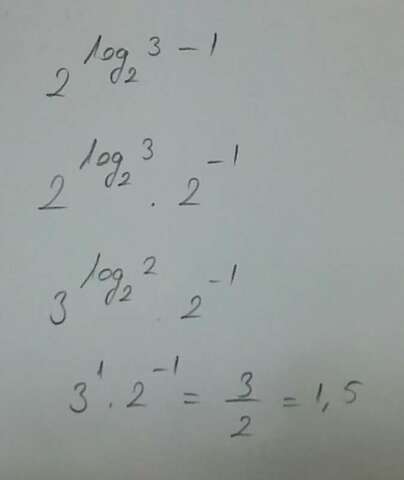 2^{log_2 3 - 1}
2^{log_2 3} . 2^{-1}
3^{log_2 2} 2^{-1}
3^1 . 2^{-1} = 3/2 = 1,5